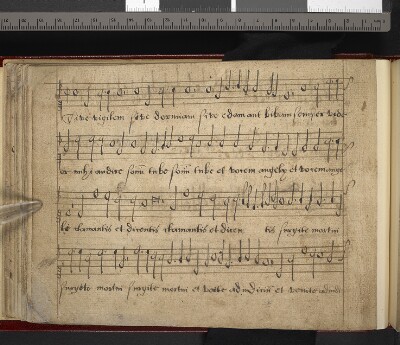 Sive vigilem sive dormiam sive edam aut bibam semper vide
or mihi audire sonu tube sonu tube et vocem angely et vocem ange
li clamantis et dicentis clamantis et dicen tis surgite mortui
surgite mortui surgite mortui et venite ad iudiciu et venite